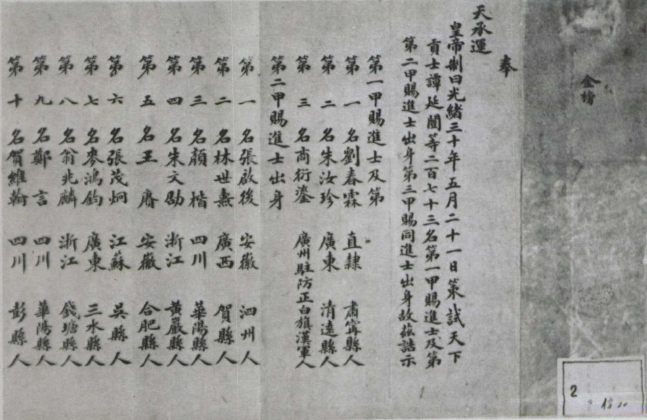 金榜
奉
天承運
皇帝制曰光緒三十年五月二十一日策試天下
貢士譚延闓等二百七十三名第一甲賜進士及第
第二甲賜進士出身第三甲賜同進士出身故茲誥示
第一甲賜進士及第
第一名劉春霖 直隸 肅寧縣人
第二名朱汝珍 廣東 清遠縣人
第三名商衍鎏 廣州駐防正白旗漢軍人
第二甲賜進士出身
第一名張啟後 安徽 泗州人
第二名林世燾 廣西 賀縣人
第三名顏楷 四川 華陽縣人
第四名朱文劭 浙江 黃巖縣人
第五名王賡 安徽 合肥縣人
第六名張茂炯 江蘇 吳縣人
第七名麥鴻鈞 廣東 三水縣人
第八名翁兆麟 浙江 錢塘縣人
第九名鄭言 四川 華陽縣人
第十名賀維翰 四川 彭縣人
2